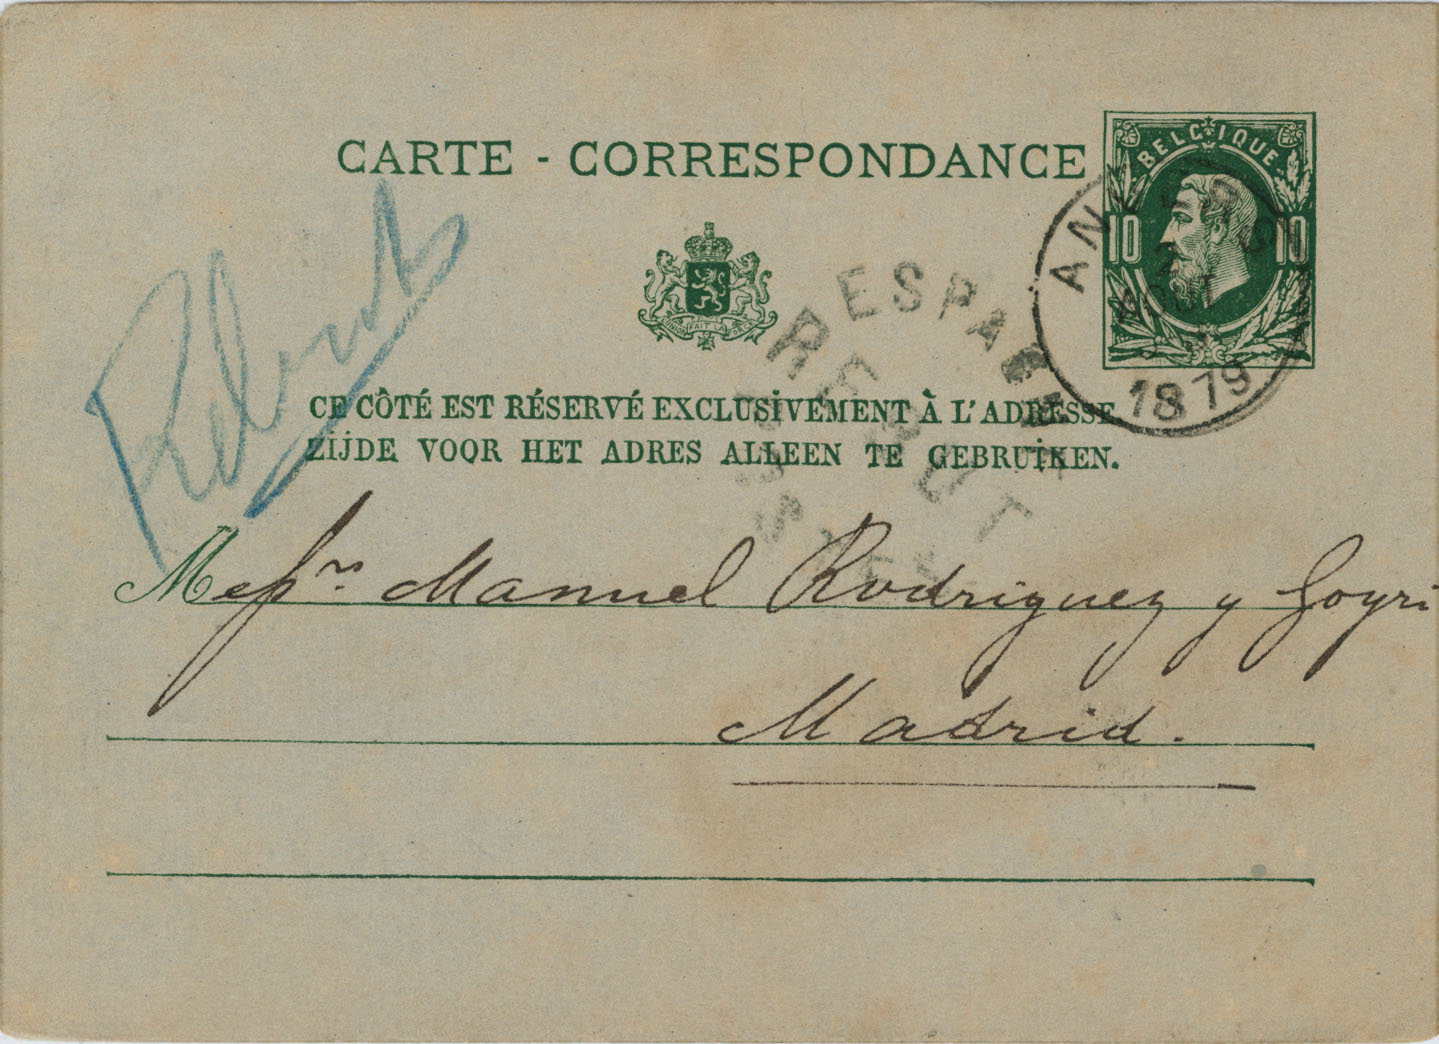 CARTE - CORRESPONDANCE
BELGIQUE
10 10
ANVERS
2
AOUT
1879
L'UNION FAIT LA FORCE
Rebut
ESPAGNE
REBUT
CE CÔTÉ EST RÉSERVÉ EXCLUSIVEMENT À L'ADRESSE
ZIJDE VOOR HET ADRES ALLEEN TE GEBRUIKEN.
Messrs Manuel Rodriguez y Goyri
Madrid.